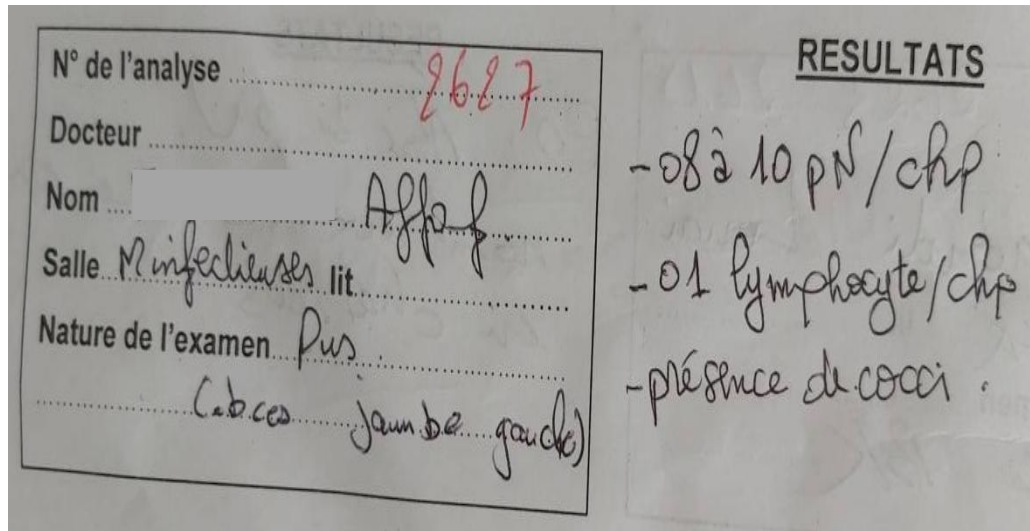 N° de l'analyse 2627
Docteur
Nom Affaf
Salle M infectieuses lit
Nature de l'examen Pus
(abces jambe gauche)
RESULTATS
- 08 à 10 pN/chp
- 01 lymphocyte/chp
- présence de cocci.